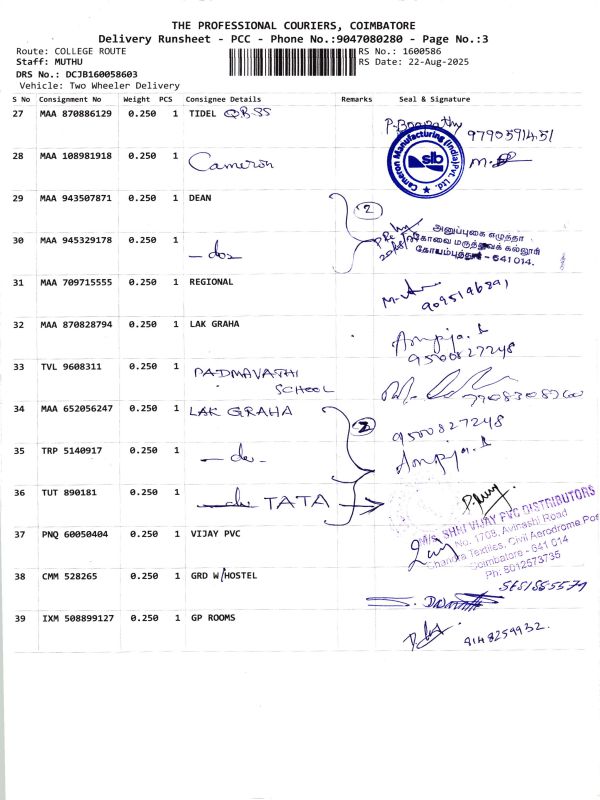 THE PROFESSIONAL COURIERS, COIMBATORE
Delivery Runsheet - PCC - Phone No.:9047080280 - Page No.:3
Route: COLLEGE ROUTE RS No.: 1600586
Staff: MUTHU RS Date: 22-Aug-2025
DRS No.: DCJB160058603
Vehicle: Two Wheeler Delivery
S No Consignment No Weight PCS Consignee Details Remarks Seal & Signature
27 MAA 870886129 0.250 1 TIDEL
9790591451
28 MAA 108981918 0.250 1 Cameron
Cameron Manufacturing (India) Pvt. Ltd.
slb
29 MAA 943507871 0.250 1 DEAN
2
அனுப்புகை எழுத்தர்
கோவை மருத்துவக் கல்லூரி
கோயம்புத்தூர் - 641 014.
30 MAA 945329178 0.250 1 — do
31 MAA 709715555 0.250 1 REGIONAL
9095196891
32 MAA 870828794 0.250 1 LAK GRAHA
9500827248
33 TVL 9608311 0.250 1 PADMAVATHI
SCHOOL
34 MAA 652056247 0.250 1 LAK GRAHA
9500827248
35 TRP 5140917 0.250 1 — do -
36 TUT 890181 0.250 1 TATA
M/s. SHRI VIJAY PVC DISTRIBUTORS
No. 1708, Avinashi Road
Chandra Textiles, Civil Aerodrome Post
Coimbatore - 641 014
Ph: 8012573735
37 PNQ 60050404 0.250 1 VIJAY PVC
38 CMM 528265 0.250 1 GRD W/HOSTEL
39 IXM 508899127 0.250 1 GP ROOMS
9148259932.